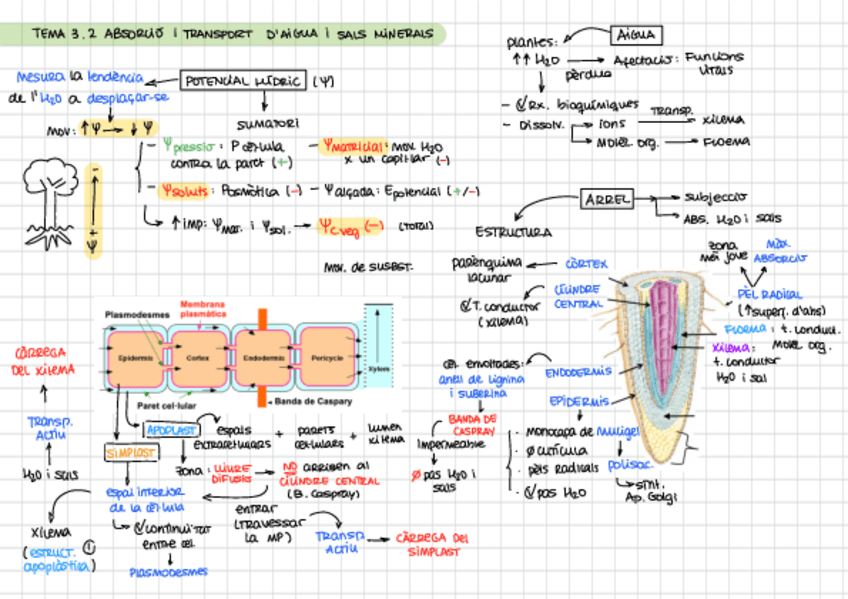 TEMA 3.2 ABSORCIÓ I TRANSPORT D'AIGUA I SALS MINERALS
AIGUA
plantes:
↑↑ H₂O → Afectació: Funcions
vitals
pèrdua
- Rx. bioquímiques
- Dissolv. → ions → Transp. xilema
→ Molèc. org. → FLOEMA
mesura la tendència
de l'H₂O a desplaçar-se
POTENCIAL HÍDRIC (Ψ)
mov: ↑Ψ → ↓Ψ
SUMATORI
- Ψpressió: P cèl·lula
contra la paret (+)
- Ψmatricial: mov. H₂O
x un capil·lar (-)
- Ψsoluts: Posmòtica (-)
- Ψalçada: Epotencial (+/-)
↑ imp: Ψmat. i Ψsol. → Ψc.veg (-) (TOTAL)
- + Ψ
Mov. de SUBST.
ARREL
subjecció
ABS. H₂O i sals
ESTRUCTURA
parènquima
lacunar
CÒRTEX
T. conductor
(xilema)
CILINDRE
CENTRAL
zona
més jove
MÀX.
ABSORCIÓ
PÈL RADICAL
(↑superf. d'abs)
FLOEMA: t. conduct.
Molèc. org.
XILEMA:
t. conductor
H₂O i sal
cèl. envoltades:
anell de lignina
i suberina
ENDODERMIS
BANDA DE
CASPRAY
Impermeable
Ø pas H₂O i
sals
EPIDERMIS
· monocapa de mucigel
· Ø cutícula
· pèls radicals
· pas H₂O
polisac.
sínt.
Ap. Golgi
Plasmodesmes
Membrana
plasmática
Epidermis
Cortex
Endodermis
Pericycle
Xylem
Paret cel·lular
Banda de Caspary
CÀRREGA
DEL XILEMA
TRANSP.
ACTIU
H₂O i sals
XILEMA
(ESTRUCT.
apoplàstica)
APOPLAST
espais
extracel·lulars
+ parets
cel·lulars
+ lumen
xilema
SIMPLAST
zona: LLIURE
DIFUSIÓ
NO arriben al
CILINDRE CENTRAL
(B. Caspray)
espai interior
de la cèl·lula
continuïtat
entre cèl
PLASMODESMES
entrar
(travessar
la MP)
TRANSP.
ACTIU
CÀRREGA DEL
SIMPLAST